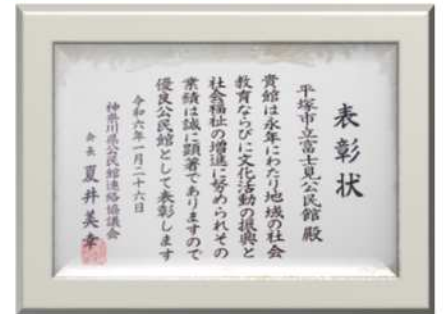 表彰状
平塚市立富士見公民館 殿
貴館は永年にわたり地域の社会
教育ならびに文化活動の振興と
社会福祉の増進に努められその
業績は誠に顕著でありますので
優良公民館として表彰します
令和六年一月二十六日
神奈川県公民館連絡協議会
会長 夏井美幸